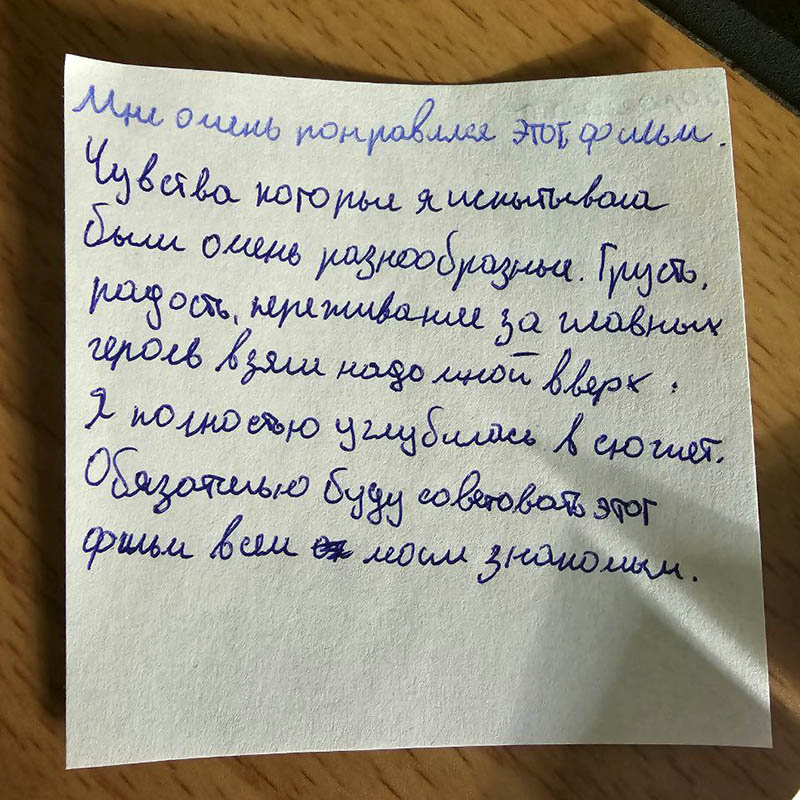 Мне очень понравился этот фильм.
Чувства которые я испытывала
были очень разнообразные. Грусть,
радость, переживание за главных
героев взяли надо мной вверх.
Я полностью углубилась в сюжет.
Обязательно буду советовать этот
фильм всем моим знакомым.